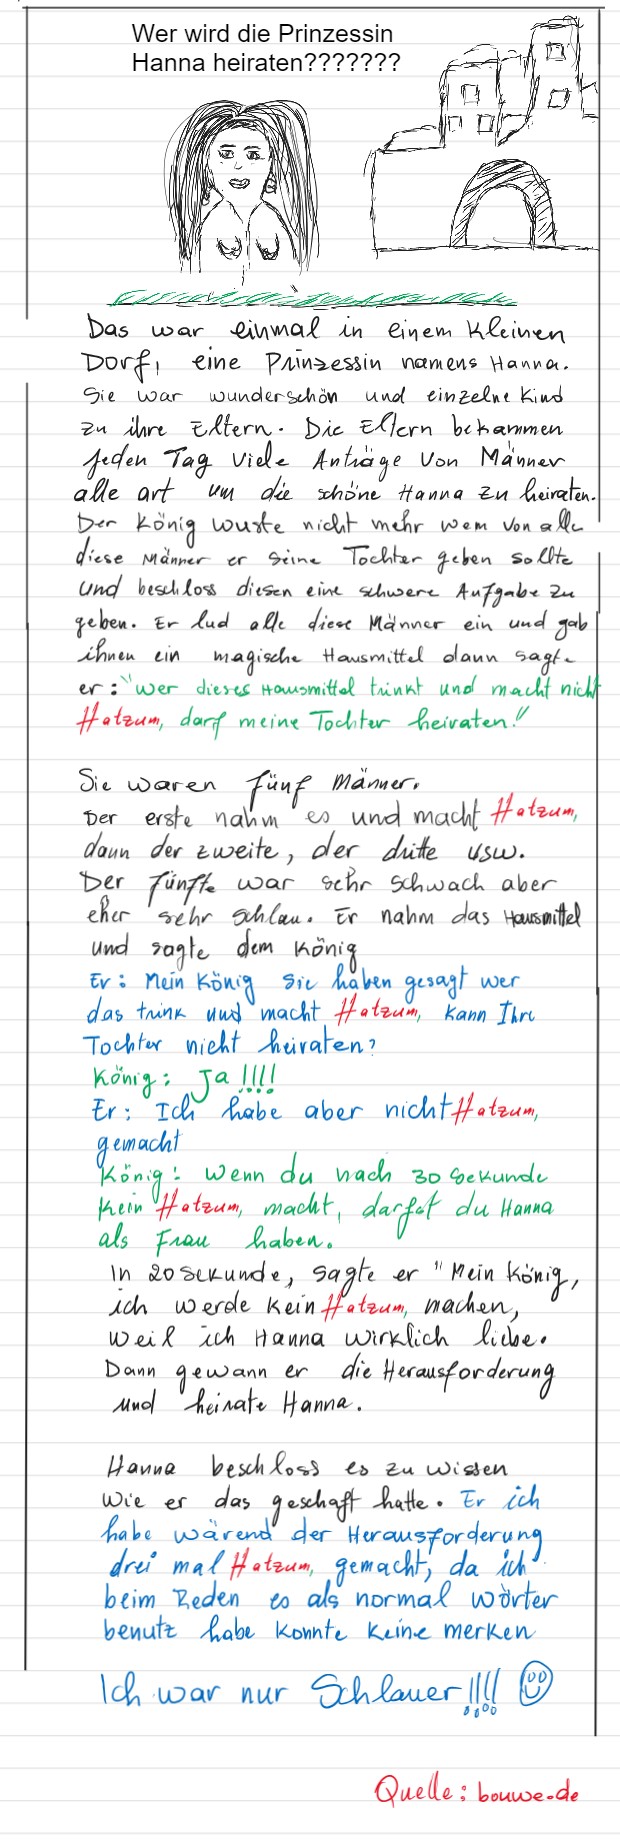 Wer wird die Prinzessin
Hanna heiraten???????
Das war einmal in einem kleinen
Dorf, eine Prinzessin namens Hanna.
Sie war wunderschön und einzelne Kind
zu ihre Eltern. Die Eltern bekammen
jeden Tag viele Anträge von Männer
alle art um die schöne Hanna zu heiraten.
Der König wuste nicht mehr wem von alle
diese Männer er seine Tochter geben sollte
und beschloss diesen eine schwere Aufgabe zu
geben. Er lud alle diese Männer ein und gab
ihnen ein magische Hausmittel dann sagte
er: "wer dieses Hausmittel trinkt und macht nicht
Hatzum, darf meine Tochter heiraten!"
Sie waren fünf Männer.
Der erste nahm es und macht Hatzum,
dann der zweite, der dritte usw.
Der fünfte war sehr schwach aber
eher sehr schlau. Er nahm das Hausmittel
und sagte dem König
Er: Mein König Sie haben gesagt wer
das trink und macht Hatzum, kann Ihre
Tochter nicht heiraten?
König: Ja !!!!
Er: Ich habe aber nicht Hatzum,
gemacht
König: wenn du nach 30 Sekunde
kein Hatzum, macht, darfst du Hanna
als Frau haben.
In 20 Sekunde, sagte er "Mein König,
ich werde kein Hatzum, machen,
weil ich Hanna wirklich liebe.
Dann gewann er die Herausforderung
und heirate Hanna.
Hanna beschloss es zu wissen
wie er das geschaft hatte. Er ich
habe wärend der Herausforderung
drei mal Hatzum, gemacht, da ich
beim Reden es als normal wörter
benutz habe konnte keine merken
Ich war nur Schlauer !!!!
Quelle: bouwe.de